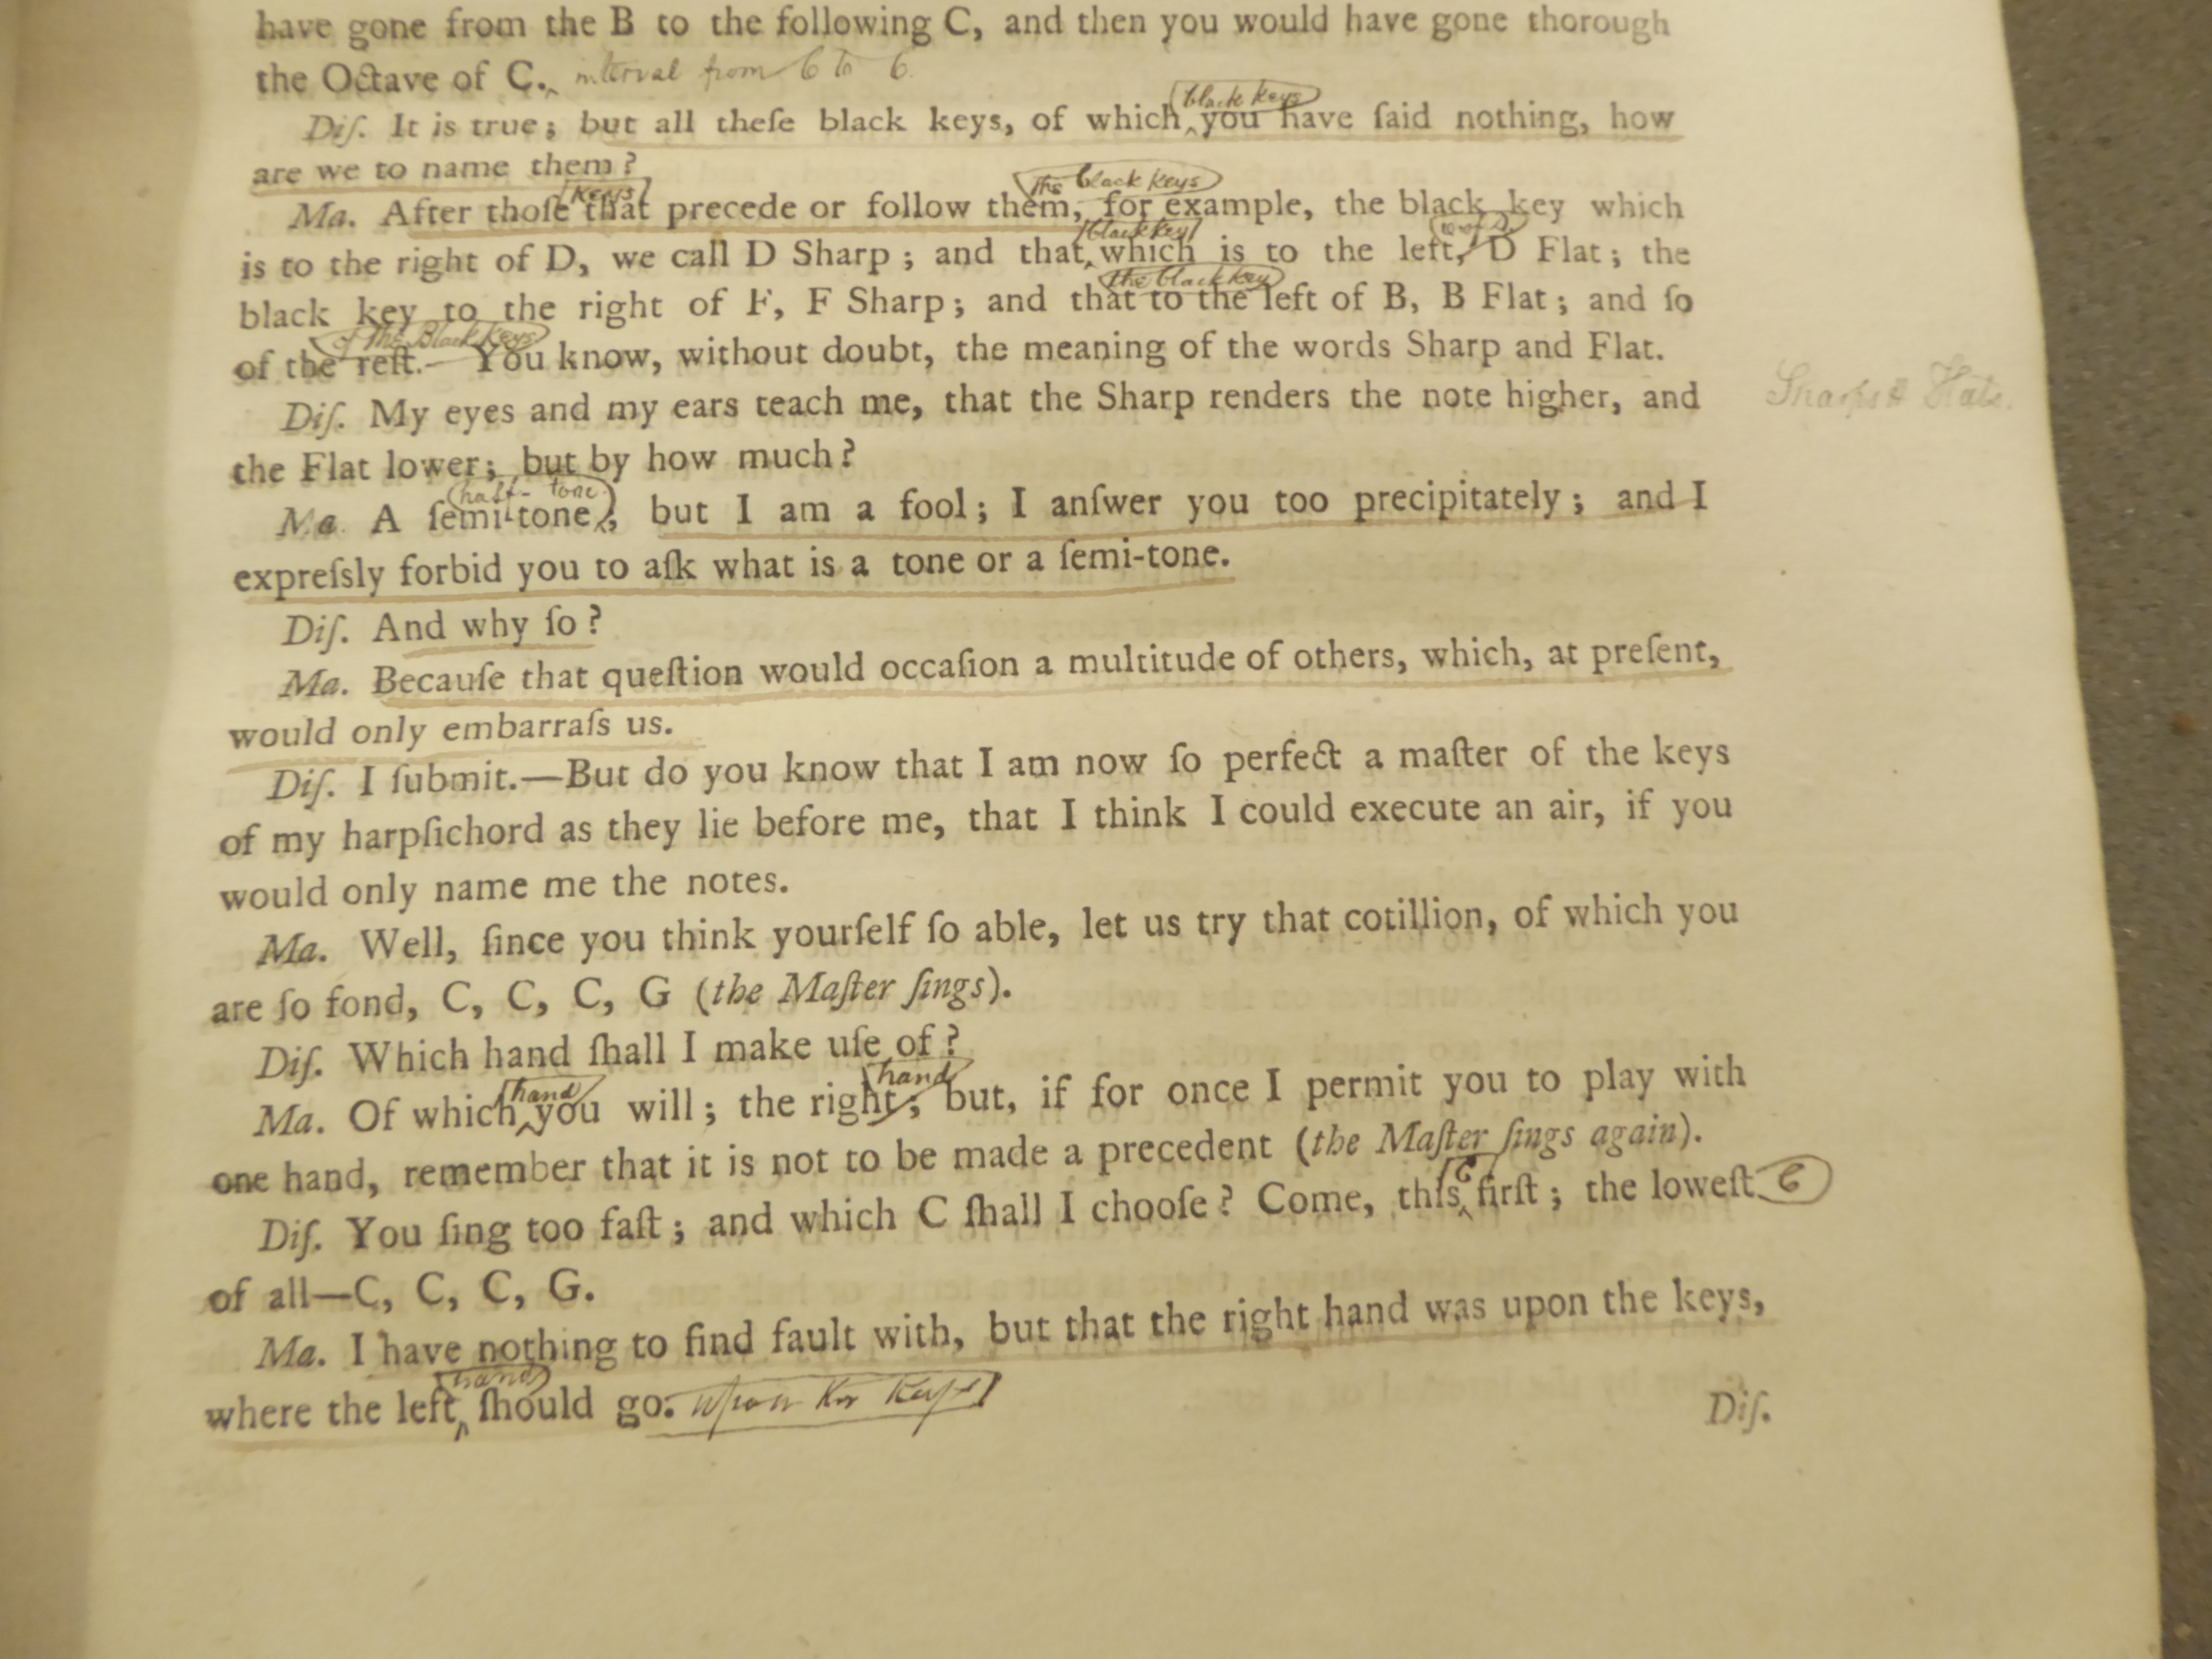 have gone from the B to the following C, and then you would have gone thorough
the Octave of C. interval from C to C
black keys
Diſ. It is true; but all theſe black keys, of which you have ſaid nothing, how
are we to name them?
keys the black keys
Ma. After thoſe that precede or follow them, for example, the black key which
black key
is to the right of D, we call D Sharp; and that which is to the left, D Flat; the
the black key
black key to the right of F, F Sharp; and that to the left of B, B Flat; and ſo
of the Black keys
of the reſt.— You know, without doubt, the meaning of the words Sharp and Flat.
Diſ. My eyes and my ears teach me, that the Sharp renders the note higher, and
Sharps & Flats.
the Flat lower; but by how much?
half-tone
Ma. A ſemi-tone; but I am a fool; I anſwer you too precipitately; and I
expreſsly forbid you to aſk what is a tone or a ſemi-tone.
Diſ. And why ſo?
Ma. Becauſe that queſtion would occaſion a multitude of others, which, at preſent,
would only embarraſs us.
Diſ. I ſubmit.—But do you know that I am now ſo perfect a maſter of the keys
of my harpſichord as they lie before me, that I think I could execute an air, if you
would only name me the notes.
Ma. Well, ſince you think yourſelf ſo able, let us try that cotillion, of which you
are ſo fond, C, C, C, G (the Maſter ſings).
Diſ. Which hand ſhall I make uſe of?
hand hand
Ma. Of which you will; the right; but, if for once I permit you to play with
one hand, remember that it is not to be made a precedent (the Maſter ſings again).
C
Diſ. You ſing too faſt; and which C ſhall I chooſe? Come, this firſt; the loweſt C
of all—C, C, C, G.
Ma. I have nothing to find fault with, but that the right hand was upon the keys,
hand
where the left ſhould go. upon the keys
Diſ.